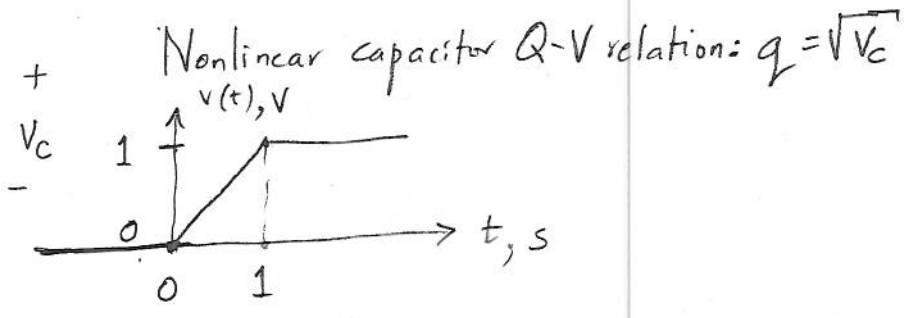 Nonlinear capacitor Q-V relation: q = √Vc
+
v(t), V
Vc
1
-
0
t, s
0 1